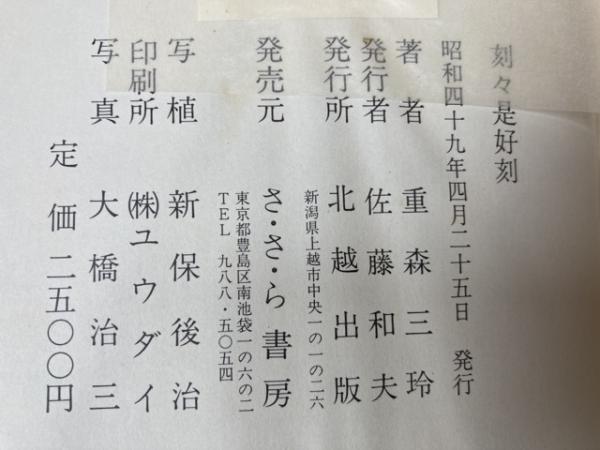 刻々是好刻
昭和四十九年四月二十五日 発行
著者 重森三玲
発行者 佐藤和夫
発行所 北越出版
新潟県上越市中央一の一の二六
発売元 さ・さ・ら書房
東京都豊島区南池袋一の六の二
TEL 九八八・五〇五四
写植 新保後治
印刷所 ㈱ユウダイ
写真 大橋治三
定価 二五〇〇円